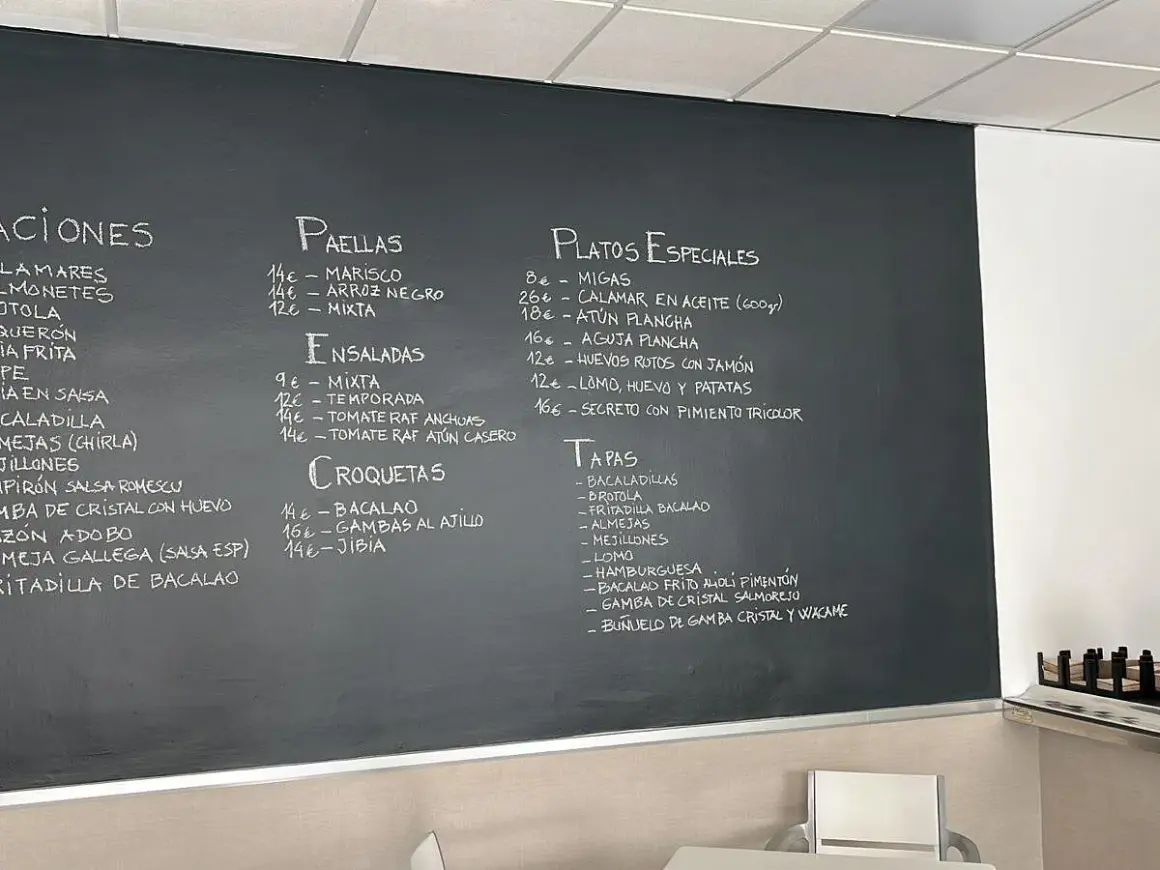 ACIONES
LAMARES
LMONETES
OTOLA
QUERÓN
ÍA FRITA
PE
ÍA EN SALSA
CALADILLA
MEJAS (CHIRLA)
JILLONES
PIRÓN SALSA ROMESCU
MBA DE CRISTAL CON HUEVO
ZÓN ADOBO
MEJA GALLEGA (SALSA ESP)
RITADILLA DE BACALAO
PAELLAS
14€ - MARISCO
14€ - ARROZ NEGRO
12€ - MIXTA
ENSALADAS
9€ - MIXTA
12€ - TEMPORADA
14€ - TOMATE RAF ANCHOAS
14€ - TOMATE RAF ATÚN CASERO
CROQUETAS
14€ - BACALAO
16€ - GAMBAS AL AJILLO
14€ - JIBIA
PLATOS ESPECIALES
8€ - MIGAS
26€ - CALAMAR EN ACEITE (600gr)
18€ - ATÚN PLANCHA
16€ - AGUJA PLANCHA
12€ - HUEVOS ROTOS CON JAMÓN
12€ - LOMO, HUEVO Y PATATAS
16€ - SECRETO CON PIMIENTO TRICOLOR
TAPAS
- BACALADILLAS
- BROTOLA
- FRITADILLA BACALAO
- ALMEJAS
- MEJILLONES
- LOMO
- HAMBURGUESA
- BACALAO FRITO ALIOLI PIMENTÓN
- GAMBA DE CRISTAL SALMOREJO
- BUÑUELO DE GAMBA CRISTAL Y WACAME